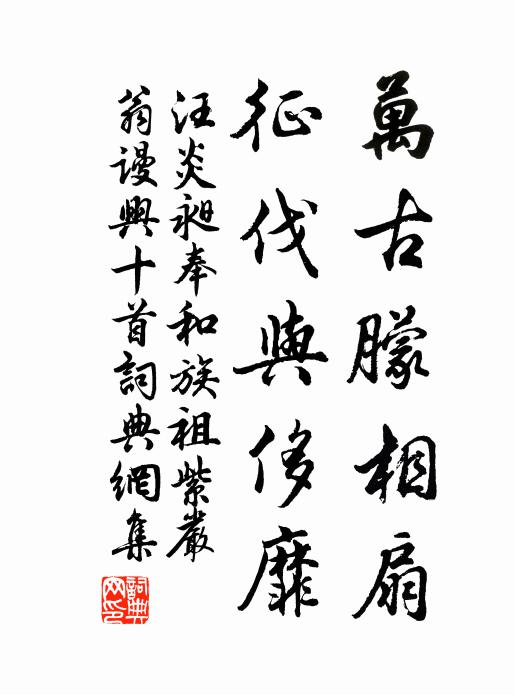 萬古朦相扇
征伐與侈靡
汪炎昶奉和族祖紫巖
翁謾興十首詞典網集
詞典網印